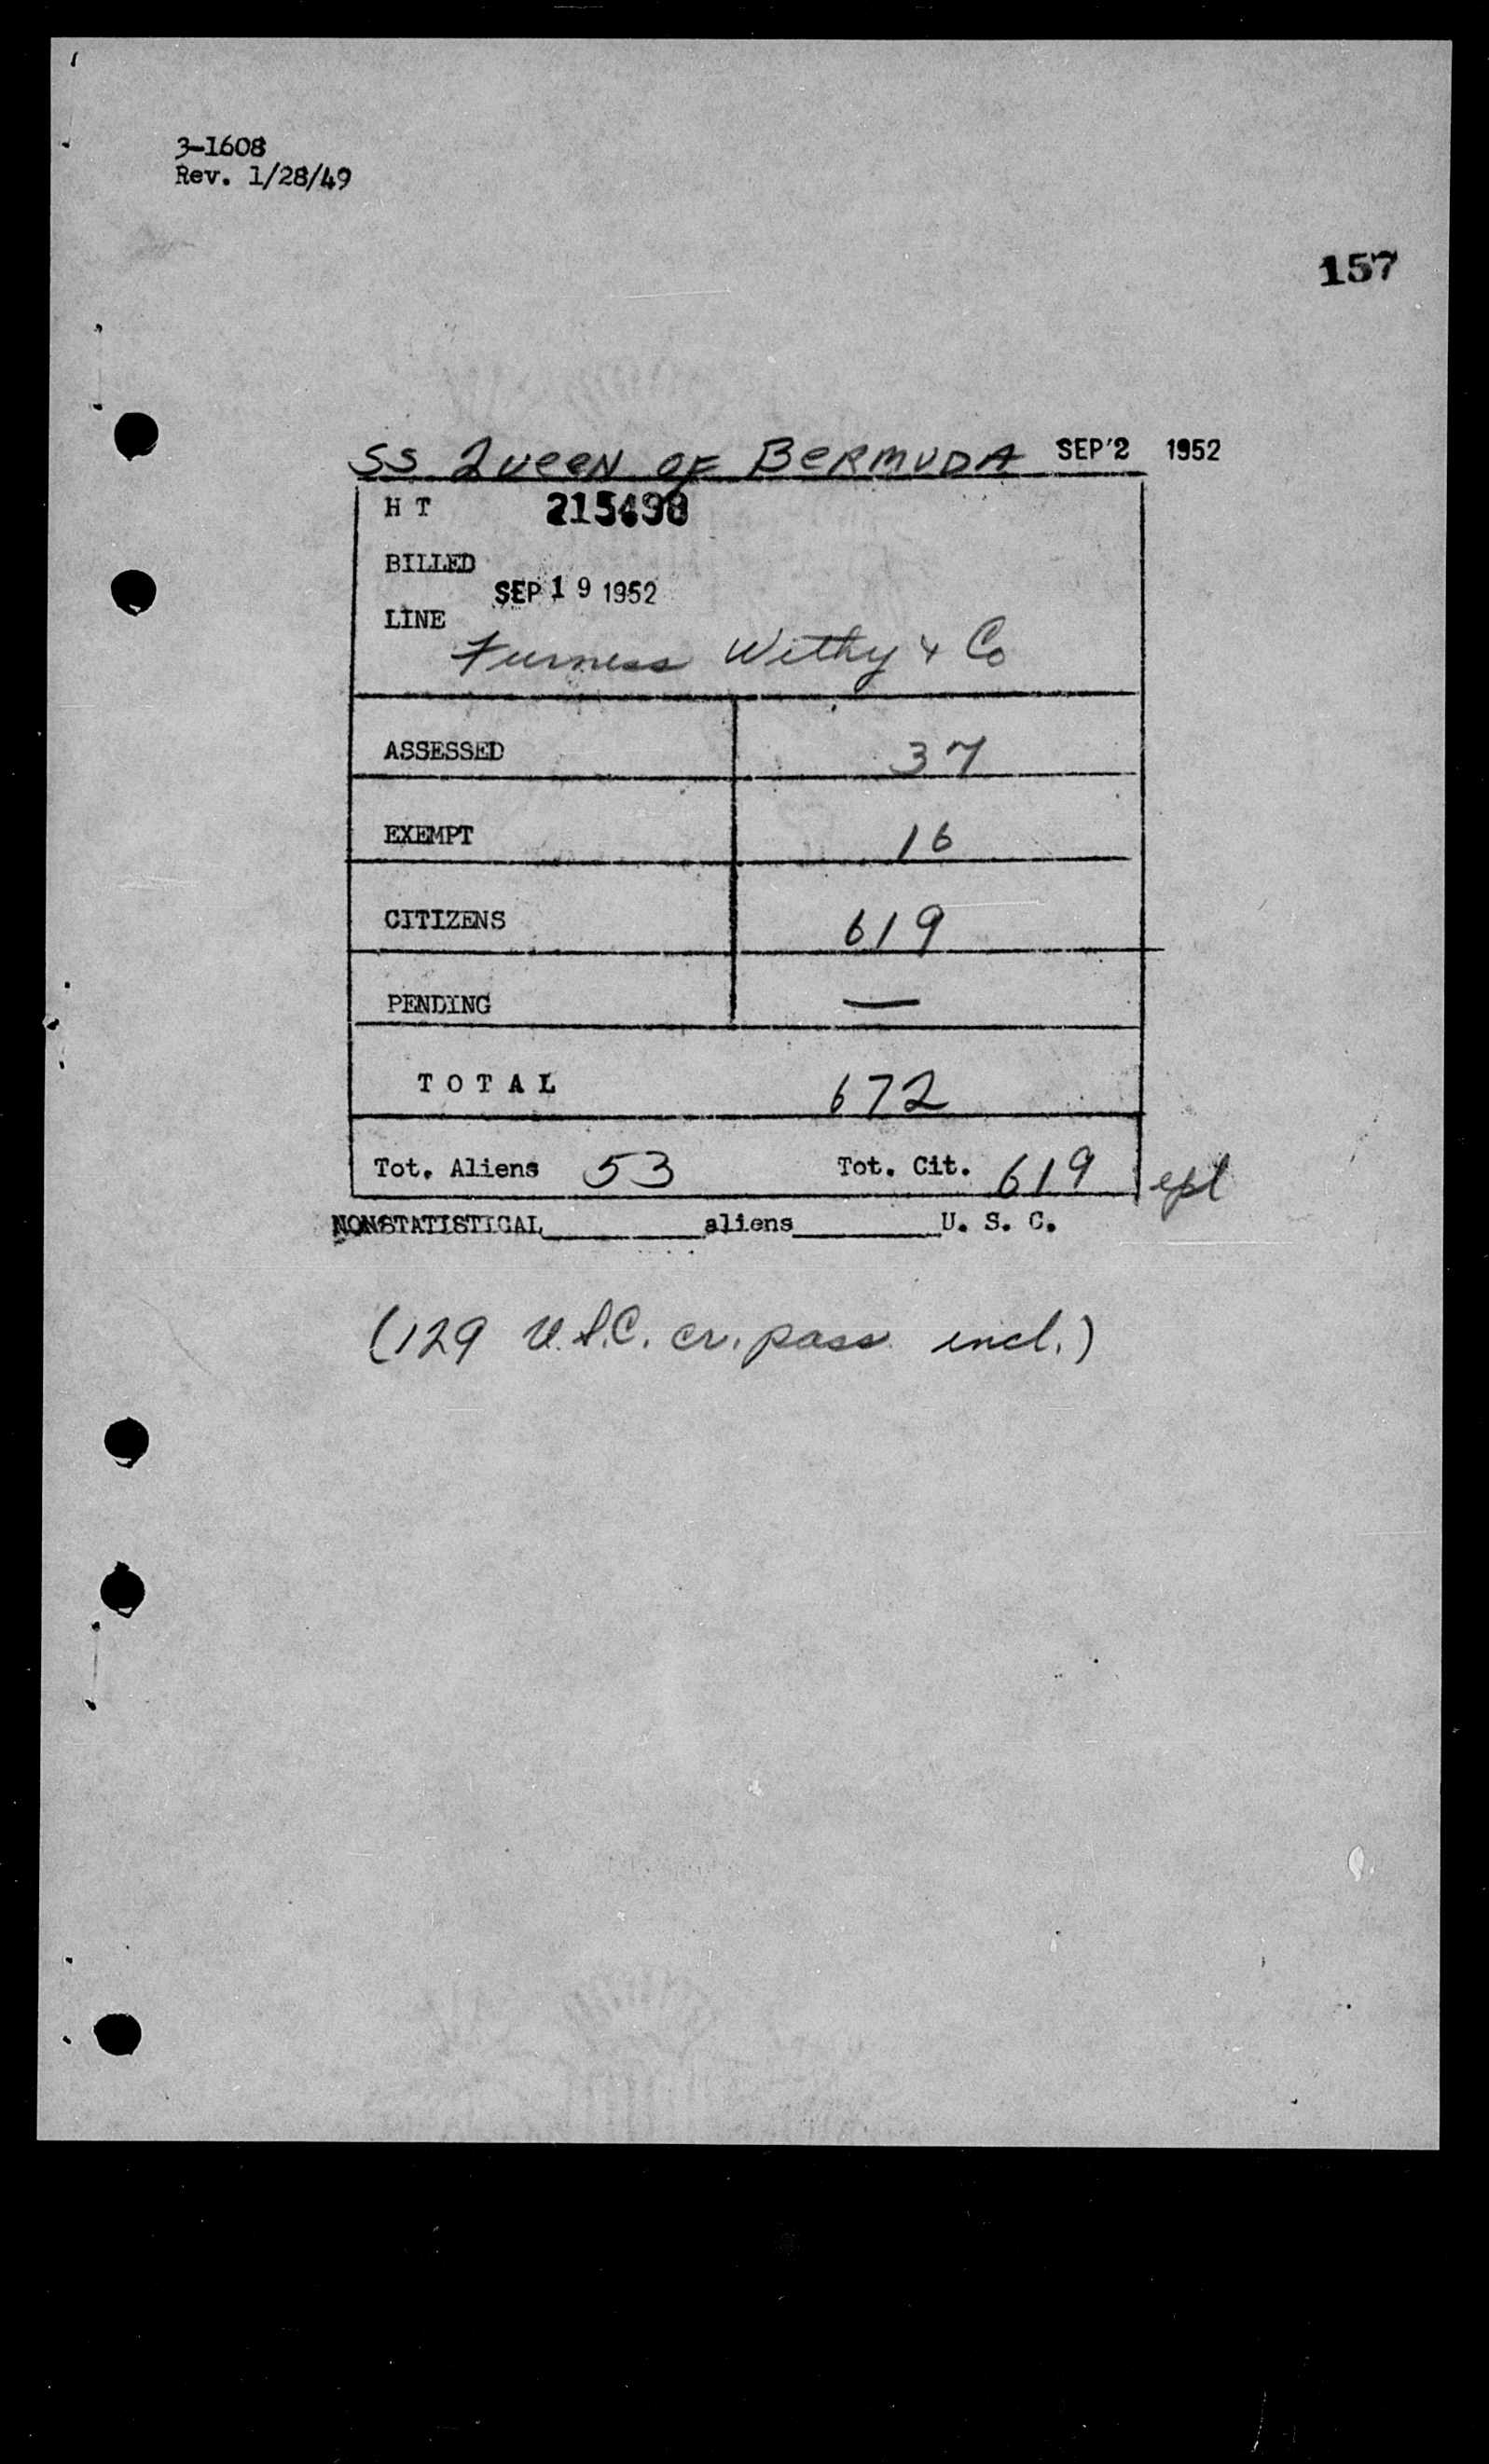 3-1608
Rev. 1/28/49
157
SS QUEEN OF BERMUDA SEP 2 1952
H T 215498
BILLED
SEP 19 1952
LINE
Furness Withy & Co
ASSESSED 37
EXEMPT 16
CITIZENS 619
PENDING —
TOTAL 672
Tot. Aliens 53 Tot. Cit. 619 epl
NONSTATISTICAL________aliens________U. S. C.
(129 U.S.C. cr. pass. incl.)